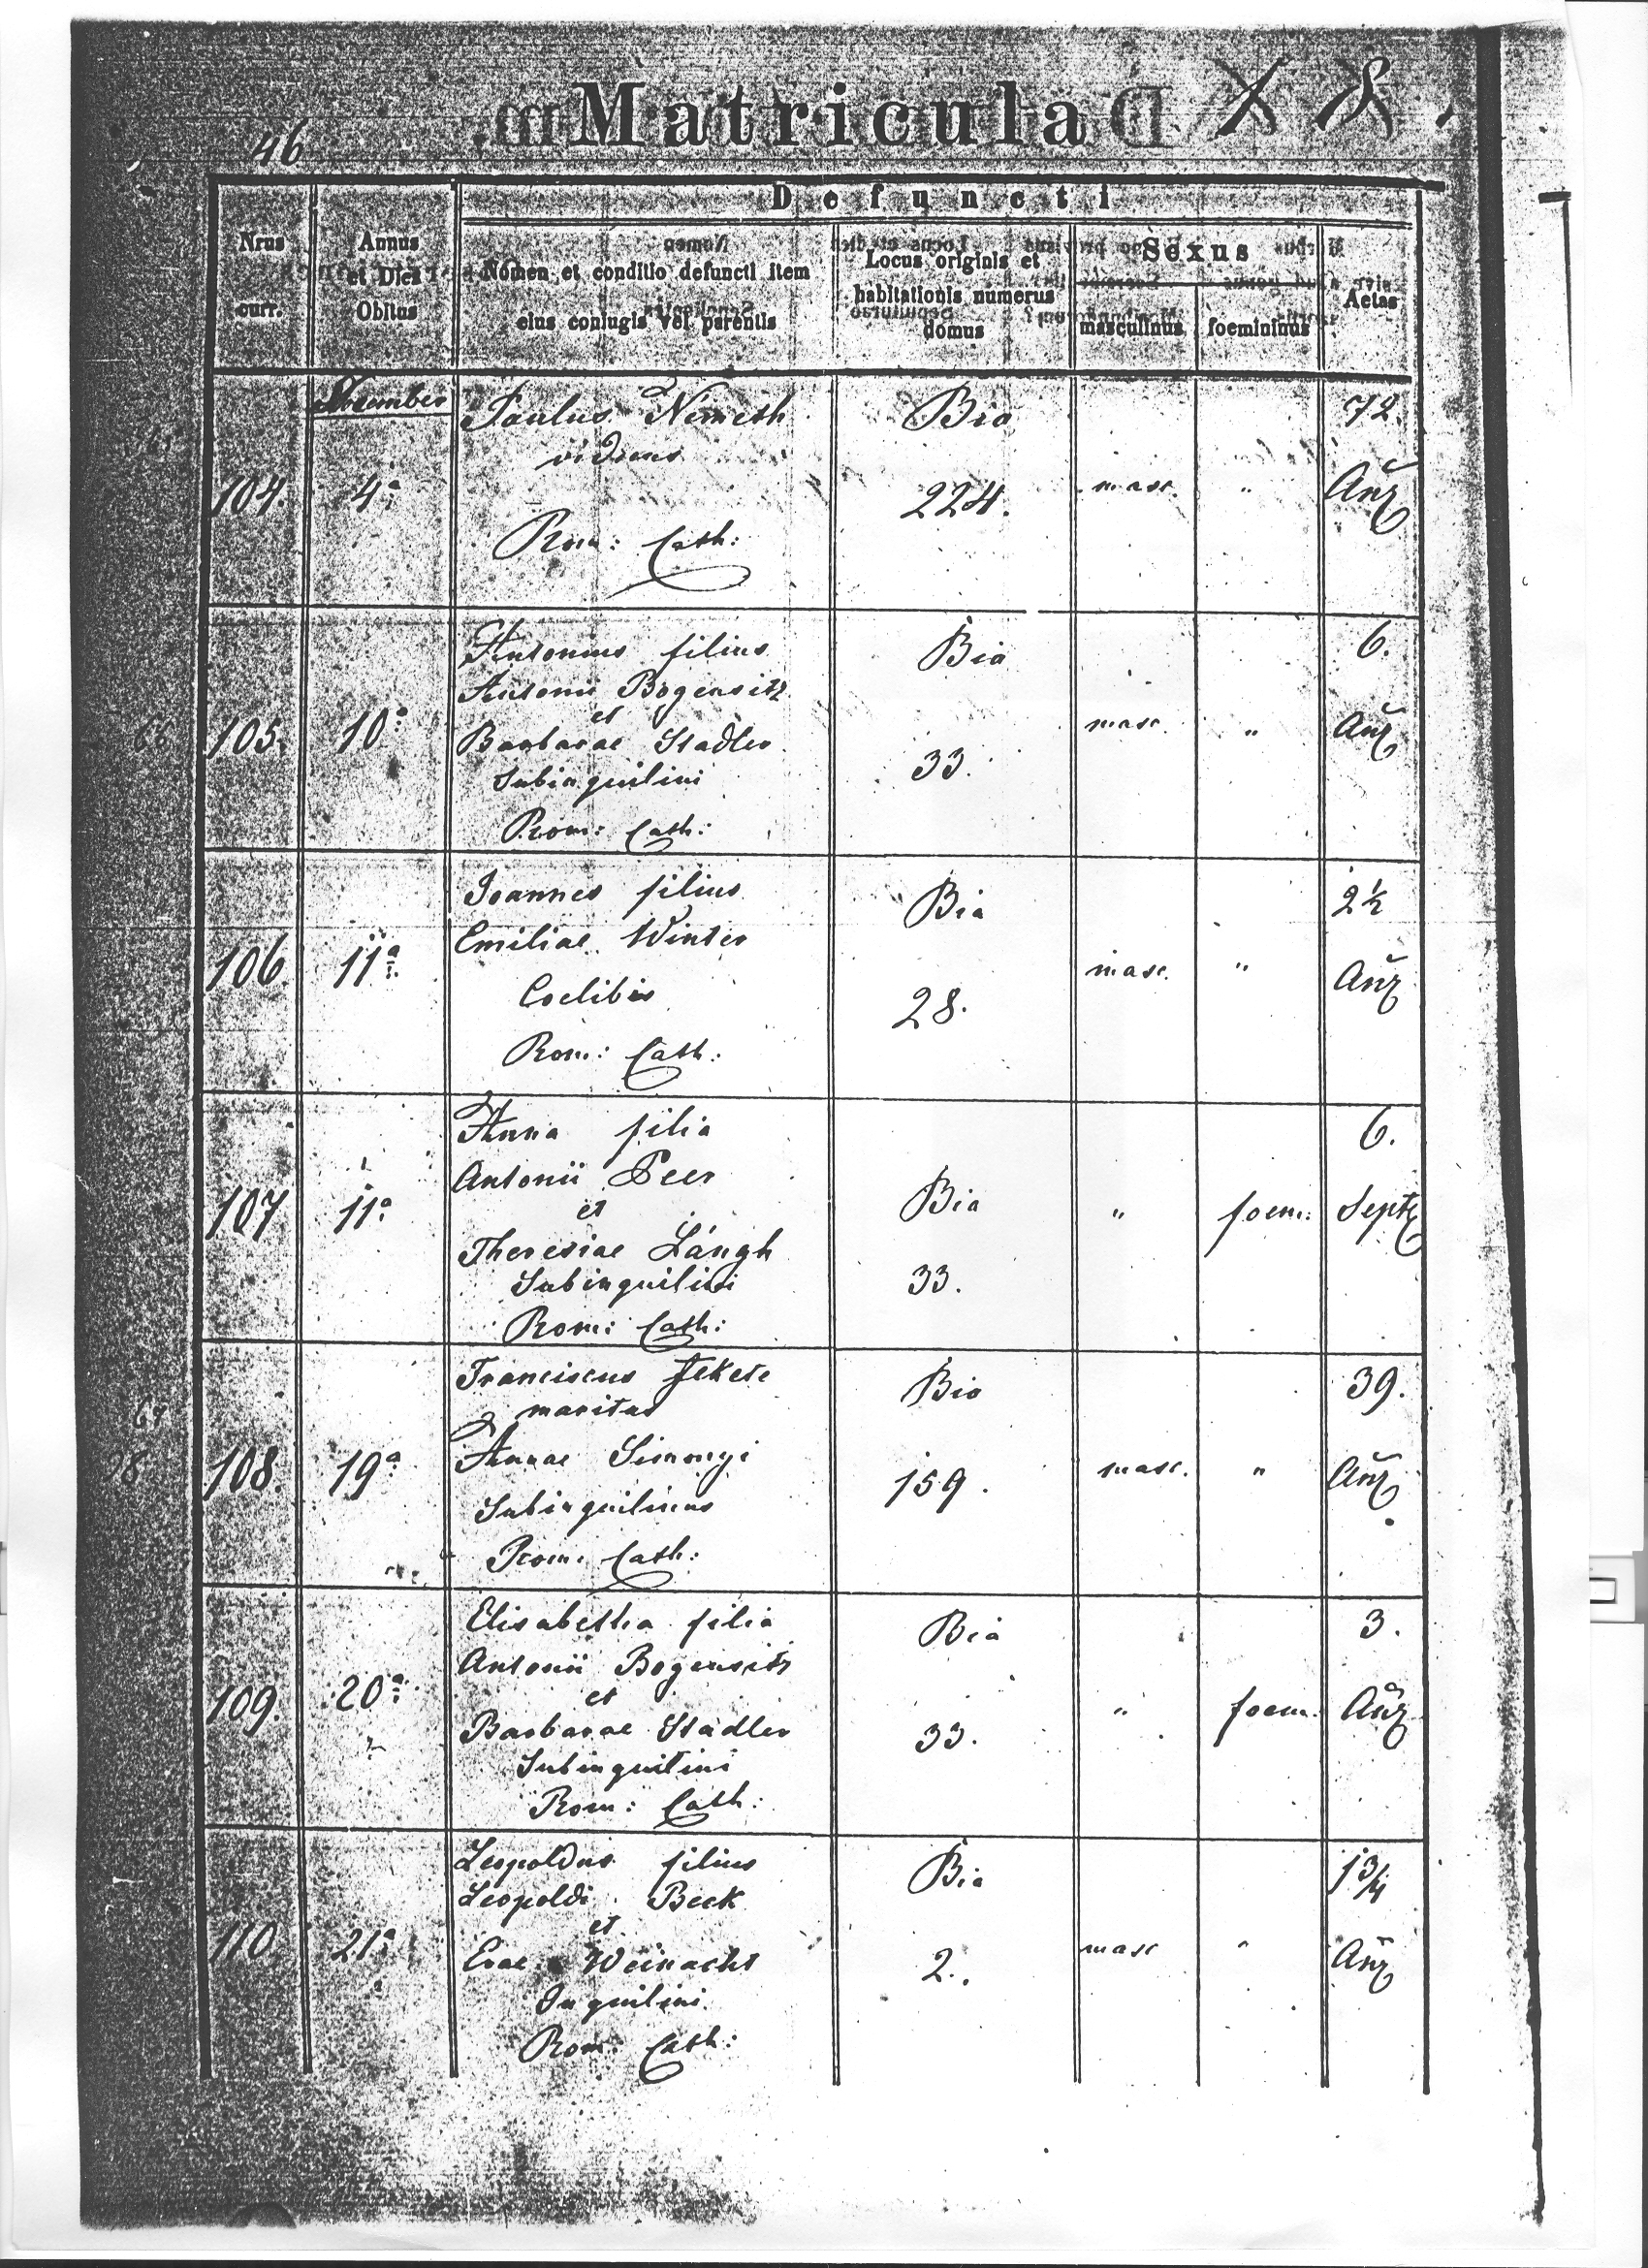 46
Matricula
Defuncti
Nrus curr.
Annus et Dies Obitus
Nomen et conditio defuncti item
eius coniugis vel parentis
Locus originis et
habitationis numerus
domus
Sexus
masculinus
foemininus
Aetas
Paulus Németh
viduus
Rom: Cath:
104.
4a
Bia
224.
masc.
"
72.
Añz
Antonius filius
Antonii Bogensitz
et
Barbarae Stadler
Subinquilini
Rom: Cath:
105.
10a
Bia
33.
masc.
"
6.
Añz
Joannes filius
Emiliae Winter
Coelibis
Rom: Cath:
106
11a
Bia
28.
masc.
"
2½
Añz
Anna filia
Antonii Peer
et
Theresiae Lángh
Subinquilini
Rom: Cath:
107
11a
Bia
33.
"
foem:
6.
Sept
Franciscus Fekete
maritus
Annae Simonyi
Subinquilinus
Rom: Cath:
108.
19a
Bia
159.
masc.
"
39.
Añz
Elisabetha filia
Antonii Bogensitz
et
Barbarae Stadler
Subinquilini
Rom: Cath:
109.
20a
Bia
33.
"
foem.
3.
Añz
Leopoldus filius
Leopoldi Beck
et
Evae Weinacht
Inquilini
Rom: Cath:
110
21a
Bia
2.
masc
"
1¾
Añz